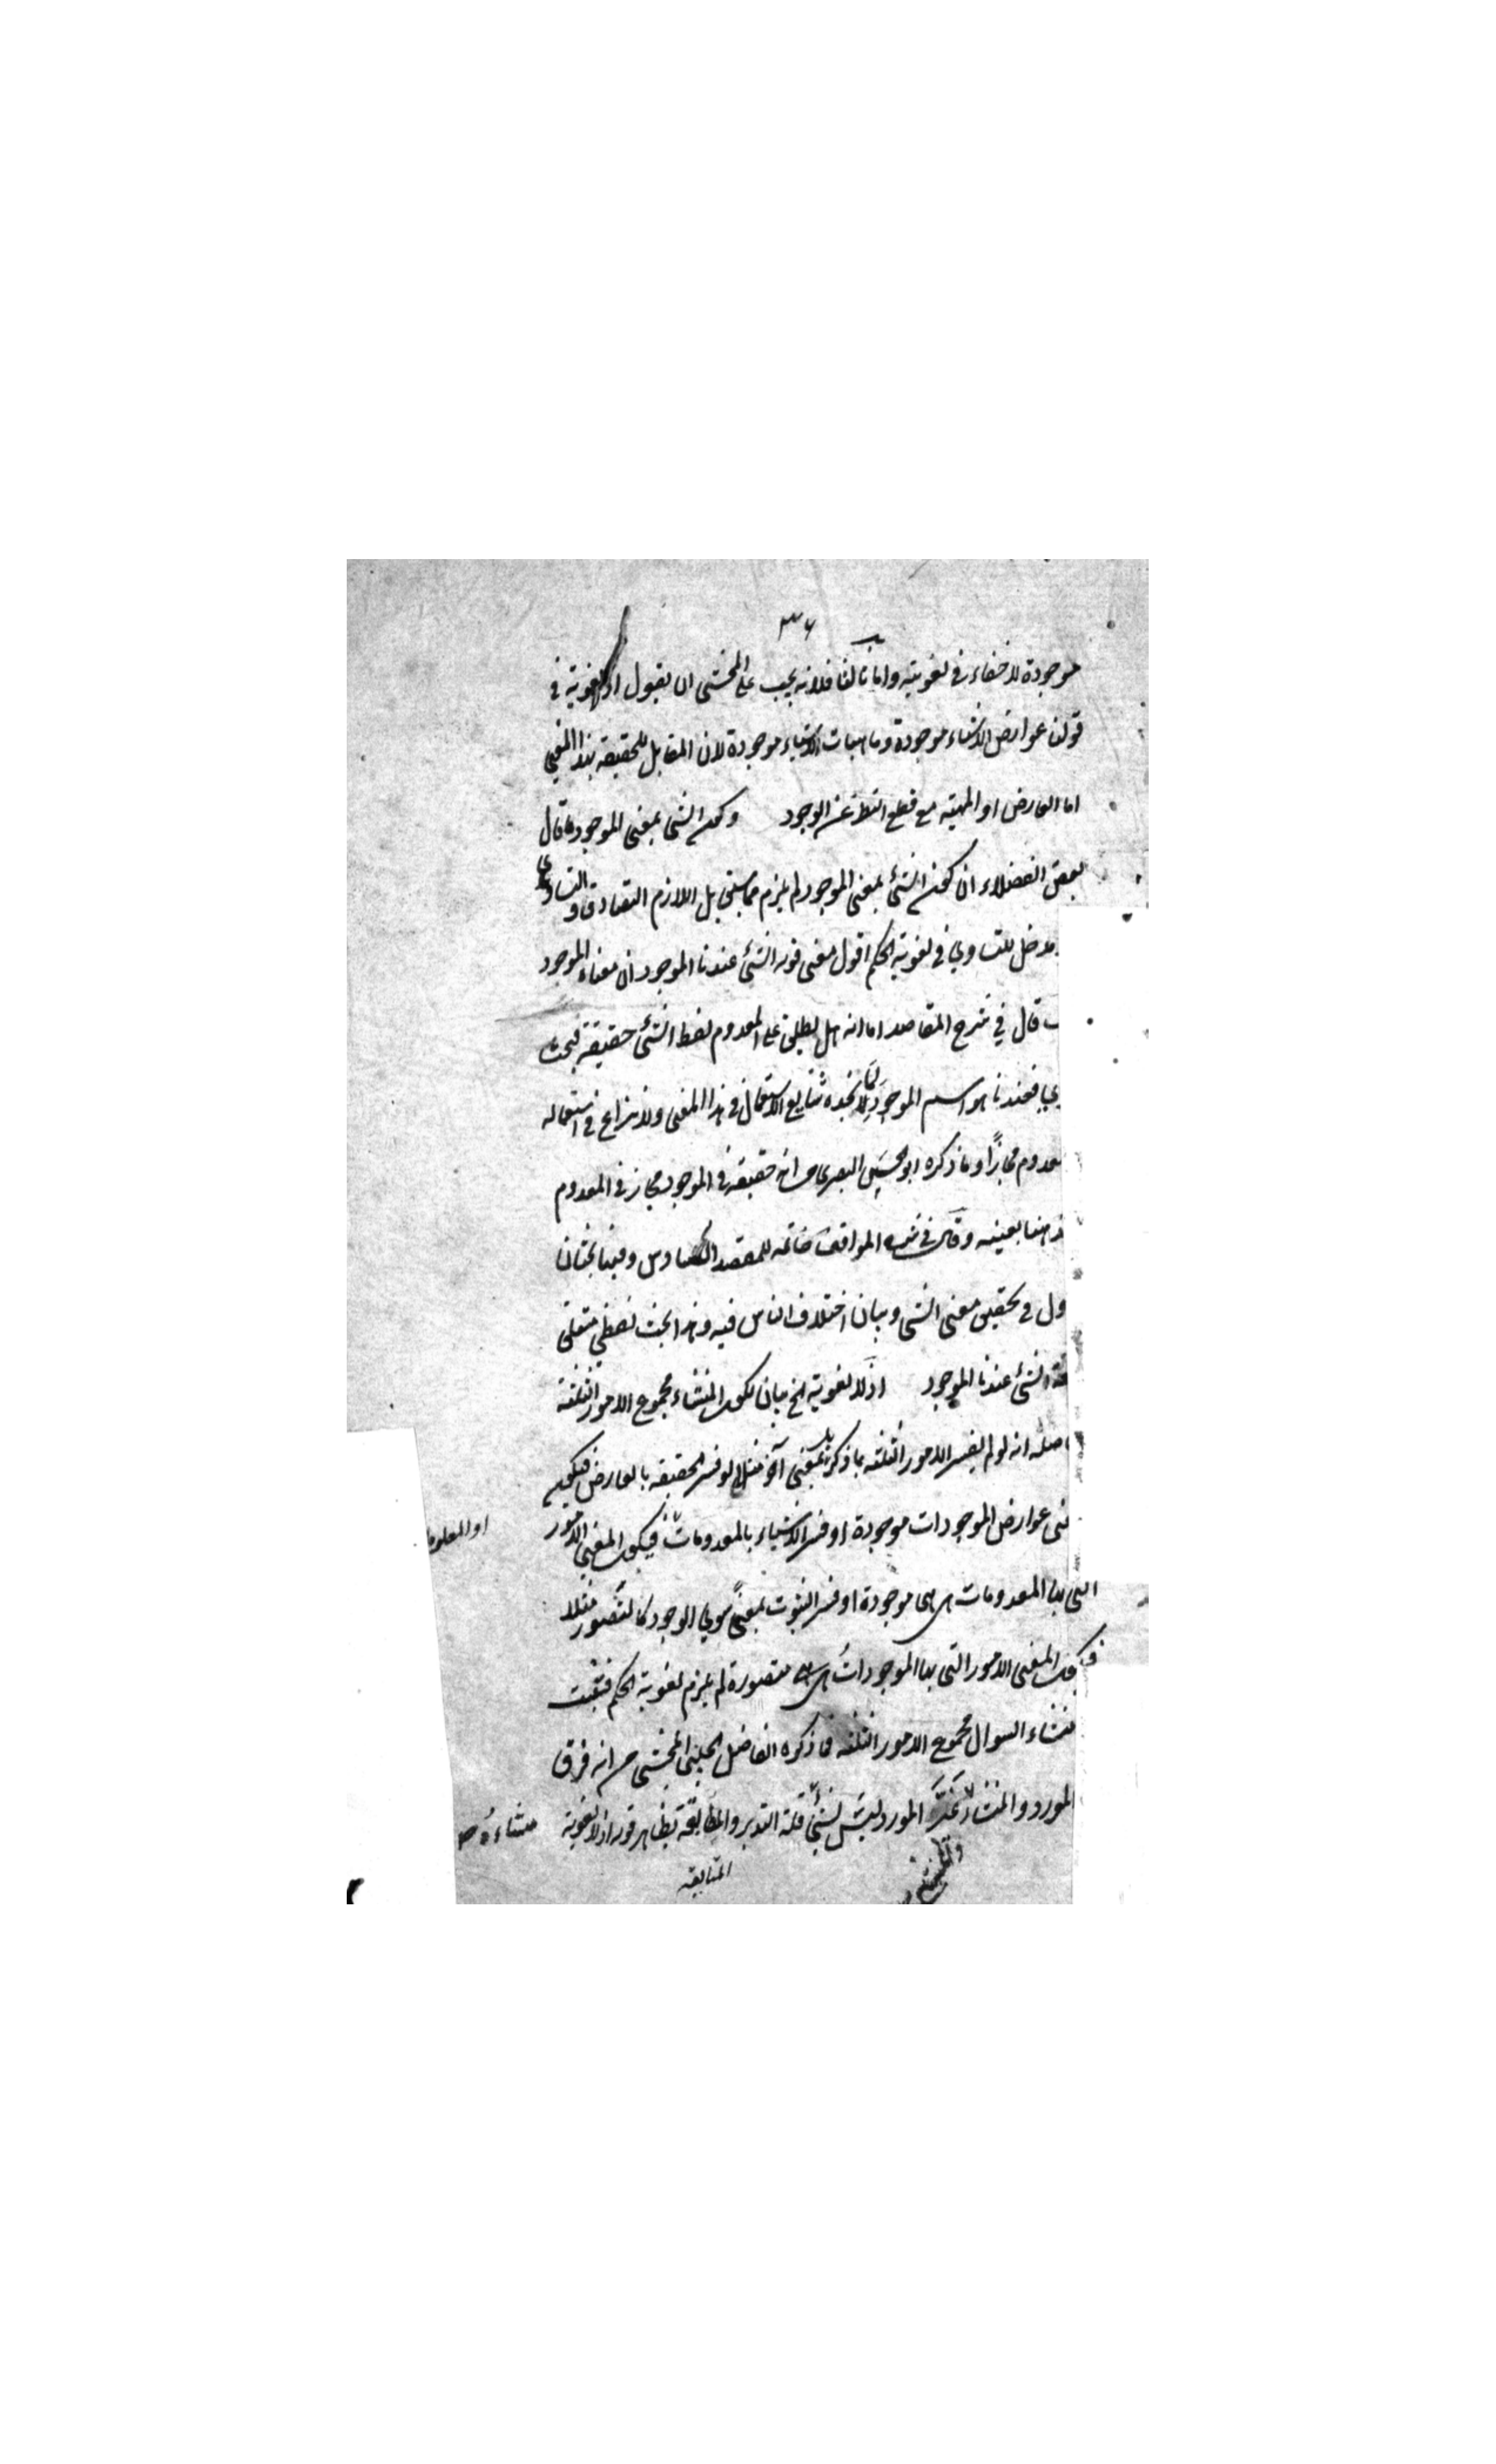 ٣٦
موجودة لا خفاء في لغويته واما ثالثا فلانه يجب على المحشى ان يقول اذ لا لغوية في
قولنا عوارض الاشياء موجودة وماهيات الاشياء موجودة لان المقابل للحقيقة بهذا المعنى
اما العارض او المهية مع قطع النظر عن الوجود وكون الشى بمعنى الموجود قال
بعض الفضلاء ان كون الشئ بمعنى الموجود لم يلزم مما سبق بل اللازم التصادق والتساوى
مدخل للتساوي في لغوية الحكم اقول معنى قوله الشئ عندنا الموجود ان معناه الموجود
قال في شرح المقاصد اما انه هل يطلق على المعدوم لفظ الشئ حقيقة فبحث
فعندنا هو اسم الموجود لما نجده شايع الاستعمال في هذا المعنى ولا نزاع في استعماله
معدوم مجازًا وما ذكره ابو الحسين البصرى من انه حقيقة في الموجود مجاز في المعدوم
مذهبنا بعينه وقال في شرح المواقف خاتمة للمقصد السادس وفيها بحثان
ول في تحقيق معنى الشى وبيان اختلاف الناس فيه وهذا بحث لفظي متعلق
الشئ عندنا الموجود اذ لا لغوية الخ بيان لكون المنشاء مجموع الامور الثلثة
حاصله انه لو لم يفسر الامور الثلثة بما ذكر بل بمعنى آخر مثلا لو فسر الحقيقة بالعارض فيكون
عوارض الموجودات موجودة او فسر الاشياء بالمعدومات فيكون المعنى الامور
او المعلومات
التى بها المعدومات هى هى موجودة او فسر الثبوت بمعنىً سوى الوجود كالتصور مثلا
فيكون المعنى الامور التى بها الموجودات هى هى متصورة لم يلزم لغوية الحكم فثبت
منشاء السوال مجموع الامور الثلثة فما ذكره الفاضل الچلبى المحشى من انه فرق
المورد والمنشاء المورد ليس بشئ قلة التدبر والمطابقة بظاهر قوله اذ لا لغوية
منشاءه
المتابعة